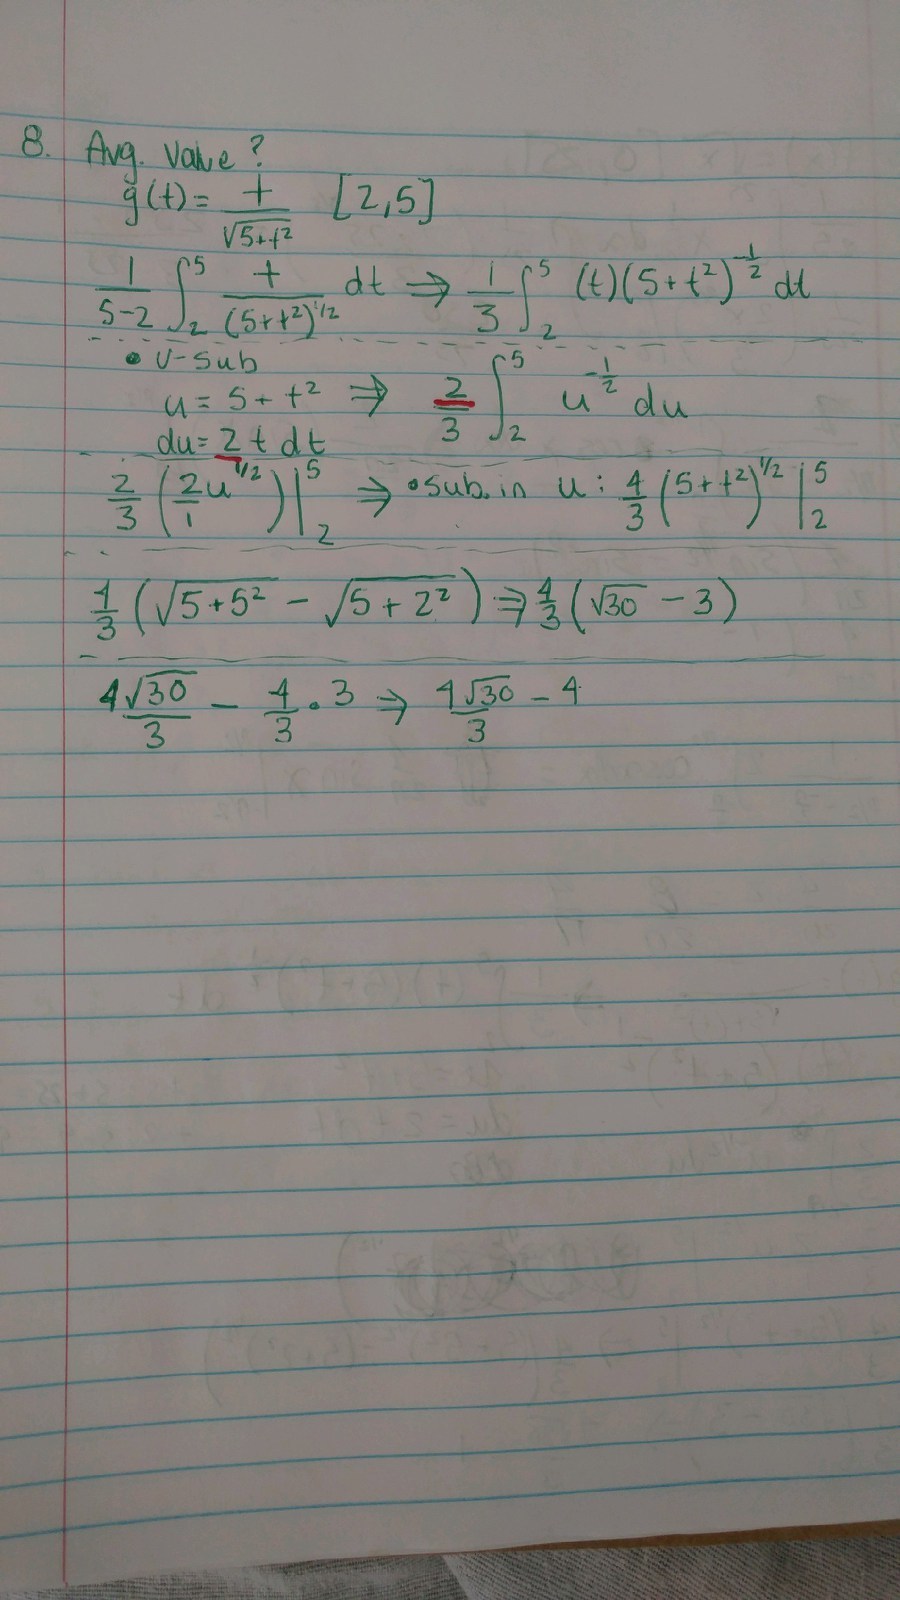 8. Avg. Value?
g(t) = t/√(5+t²) [2,5]
1/(5-2) ∫₂⁵ t/(5+t²)^(1/2) dt ⇒ 1/3 ∫₂⁵ (t)(5+t²)^(-1/2) dt
• U-sub
u = 5+t² ⇒ 2/3 ∫₂⁵ u^(-1/2) du
du = 2t dt
2/3 (2u^(1/2)/1)|₂⁵ ⇒ •sub. in u: 4/3 (5+t²)^(1/2)|₂⁵
4/3 (√(5+5²) - √(5+2²)) ⇒ 4/3 (√30 - 3)
4√30/3 - 4/3 • 3 ⇒ 4√30/3 - 4